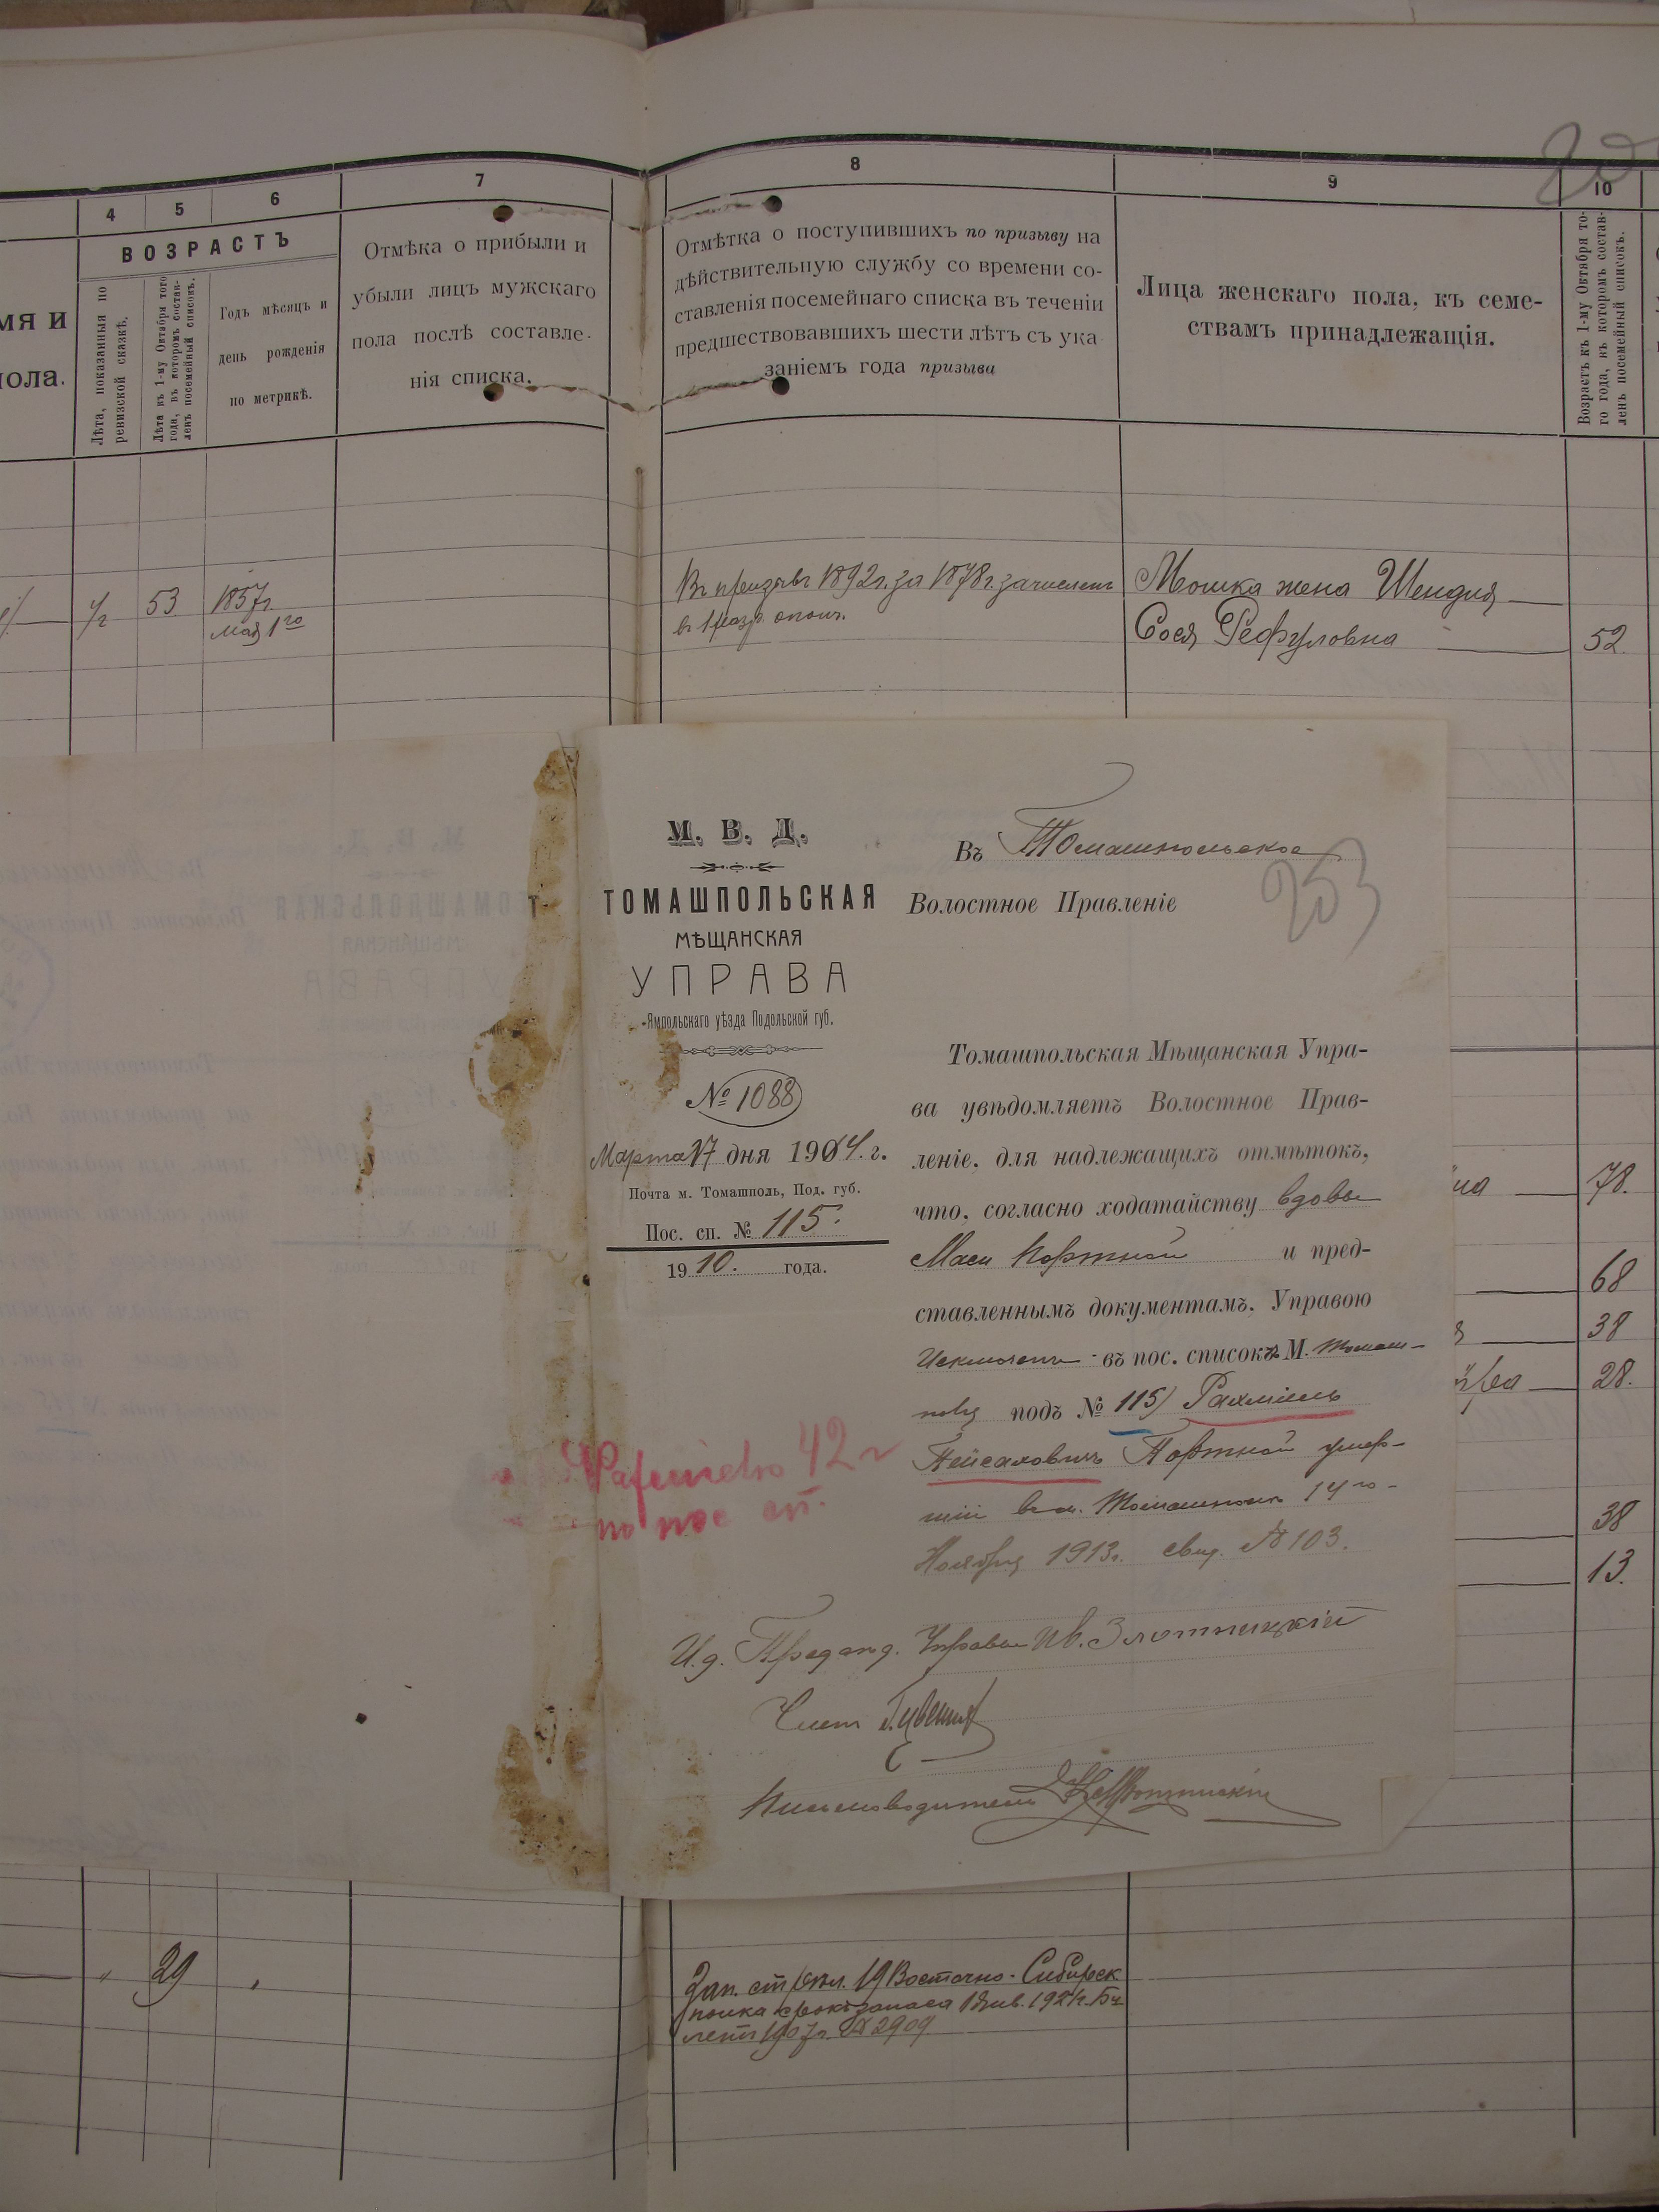 4
5
6
7
8
9
10
ВОЗРАСТЪ
мя и
пола.
Лѣта, показанныя по
ревизской сказкѣ.
Лѣта къ 1-му Октября того
года, въ которомъ состав-
ленъ посемейный списокъ.
Годъ мѣсяцъ и
день рожденія
по метрикѣ.
Отмѣка о прибыли и
убыли лицъ мужскаго
пола послѣ составле-
нія списка.
Отмѣтка о поступившихъ по призыву на
дѣйствительную службу со времени со-
ставленія посемейнаго списка въ теченіи
предшествовавшихъ шести лѣтъ съ ука
заніемъ года призыва
Лица женскаго пола, къ семе-
ствамъ принадлежащія.
Возрастъ къ 1-му Октября то-
го года, въ которомъ состав-
ленъ посемейный списокъ.
53
1857г
мая 1го
Въ призывѣ 1892г. за 1878г. зачисленъ
в 1 разр. ополч.
Мошка жена Шендля
Сося Рефуловна
52.
М. В. Д.
ТОМАШПОЛЬСКАЯ
МѢЩАНСКАЯ
УПРАВА
Ямпольскаго уѣзда Подольской губ.
№ 1088
Марта 27 дня 1914. г.
Почта м. Томашполь, Под. губ.
Пос. сп. № 115.
1910. года.
Въ Томашпольское
Волостное Правленіе
253
Томашпольская Мѣщанская Упра-
ва увѣдомляетъ Волостное Прав-
леніе, для надлежащихъ отмѣтокъ,
что, согласно ходатайству вдовы
Маси Портной и пред-
ставленнымъ документамъ, Управою
Исключенъ въ пос. списокъ М. Томаш-
поля подъ № 115) Рахміель
Пейсаховичъ Портной умер-
шій въ м. Томашполѣ 14го
Ноября 1913г. свид. № 103.
42
по пос сп.
И.д. Предсѣд. Управы Ив. Злотницкій
Членъ
Письмоводитель
78.
68
38
28.
38
13.
29
Зап. стрѣл. 19 Восточно-Сибирск
полка срокъ запаса 1 янв. 1921г. Би
летъ 1907г. № 2909